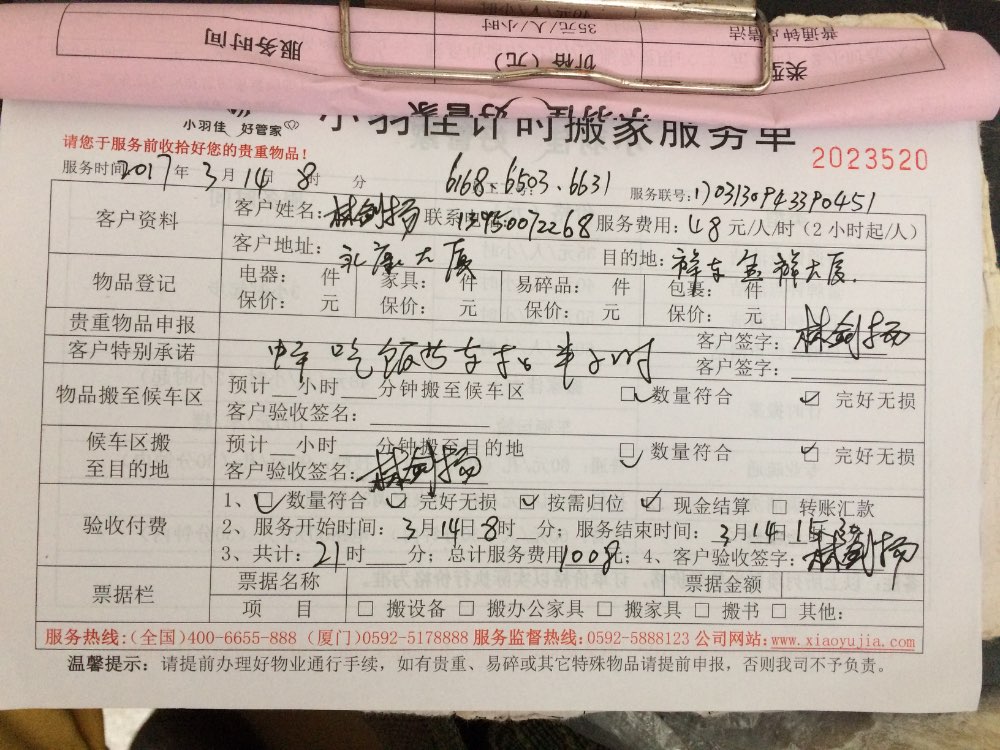 服务时间 价格（元） 类型
35元/人/小时 普通钟点清洁
小羽佳 好管家
小羽佳计时搬家服务单
请您于服务前收拾好您的贵重物品！
2023520
服务时间2017年3月14日8时 分 6168、6503、6631 服务联号：170313094339045​1
客户资料 客户姓名：林剑扬 联系 13950072268 服务费用：48元/人/时（2小时起/人）
客户地址：永康大厦 目的地：祥车宝祥大厦
物品登记 电器： 件 家具： 件 易碎品： 件 包裹： 件
保价： 元 保价： 元 保价： 元 保价： 元
贵重物品申报 客户签字：林剑扬
客户特别承诺 中午吃饭 半小时 客户签字：
物品搬至候车区 预计 小时 分钟搬至候车区 ☑数量符合 ☑完好无损
客户验收签名：
候车区搬至目的地 预计 小时 分钟搬至目的地 ☑数量符合 ☑完好无损
客户验收签名：林剑扬
验收付费 1、☑数量符合 ☑完好无损 ☑按需归位 ☑现金结算 □转账汇款
2、服务开始时间：3月14日8时 分；服务结束时间：3月14日15时30
3、共计：21时 分；总计服务费用1008元；4、客户验收签字：林剑扬
票据栏 票据名称 票据金额
项 目 □搬设备 □搬办公家具 □搬家具 □搬书 □其他：
服务热线：（全国）400-6655-888 （厦门）0592-5178888 服务监督热线：0592-5888123 公司网站：www.xiaoyujia.com
温馨提示：请提前办理好物业通行手续，如有贵重、易碎或其它特殊物品请提前申报，否则我司不予负责。